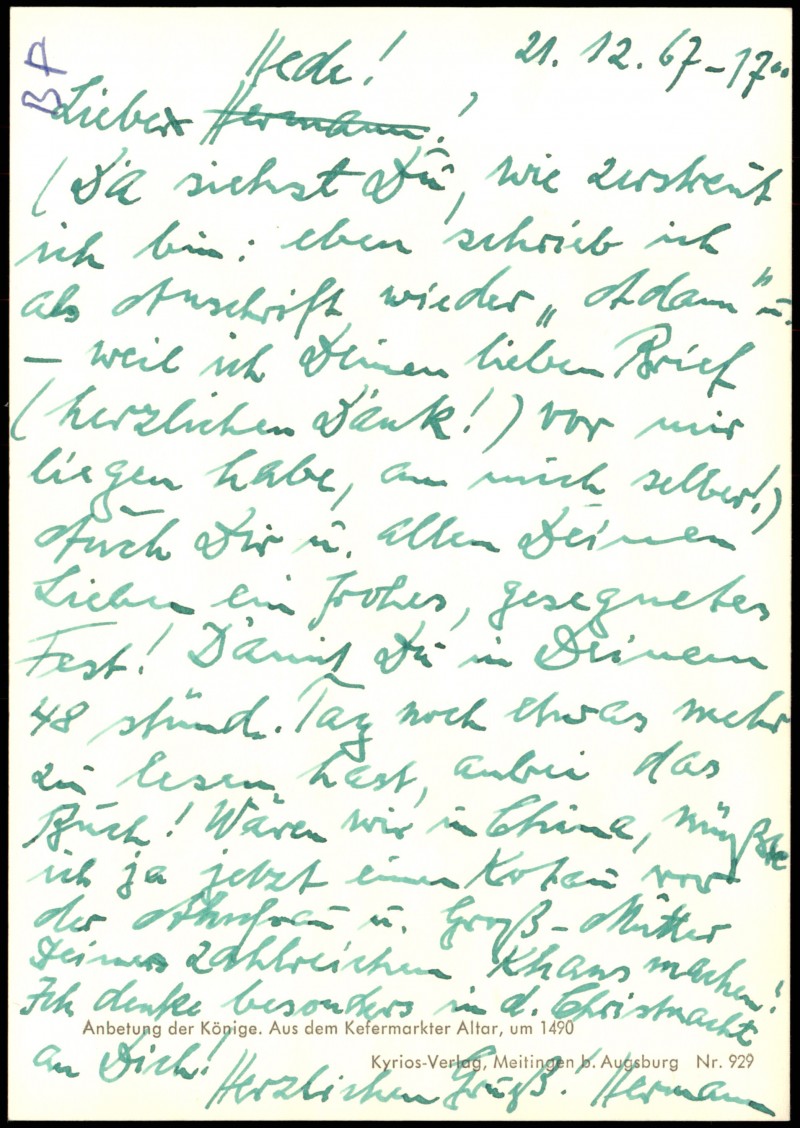 BP
Hede! 21. 12. 67 - 17⁰⁰
Lieber Hermann!
(Da siehst Du, wie zerstreut
ich bin: eben schrieb ich
als Anschrift wieder „Adam" u.
— weil ich Deinen lieben Brief
(herzlichen Dank!) vor mir
liegen habe, an mich selber!)
Auch Dir u. allen Deinen
Lieben ein frohes, gesegnetes
Fest! Damit Du in Deinem
48 stünd. Tag noch etwas mehr
zu lesen hast, anbei das
Buch! Wären wir in China, müßte
ich ja jetzt einen Kotau vor
der Ahnfrau u. Groß-Mutter
Deines zahlreichen Khans machen!
Ich denke besonders in d. Christnacht
Anbetung der Könige. Aus dem Kefermarkter Altar, um 1490
an Dich!
Kyrios-Verlag, Meitingen b. Augsburg Nr. 929
Herzlichen Gruß! Hermann